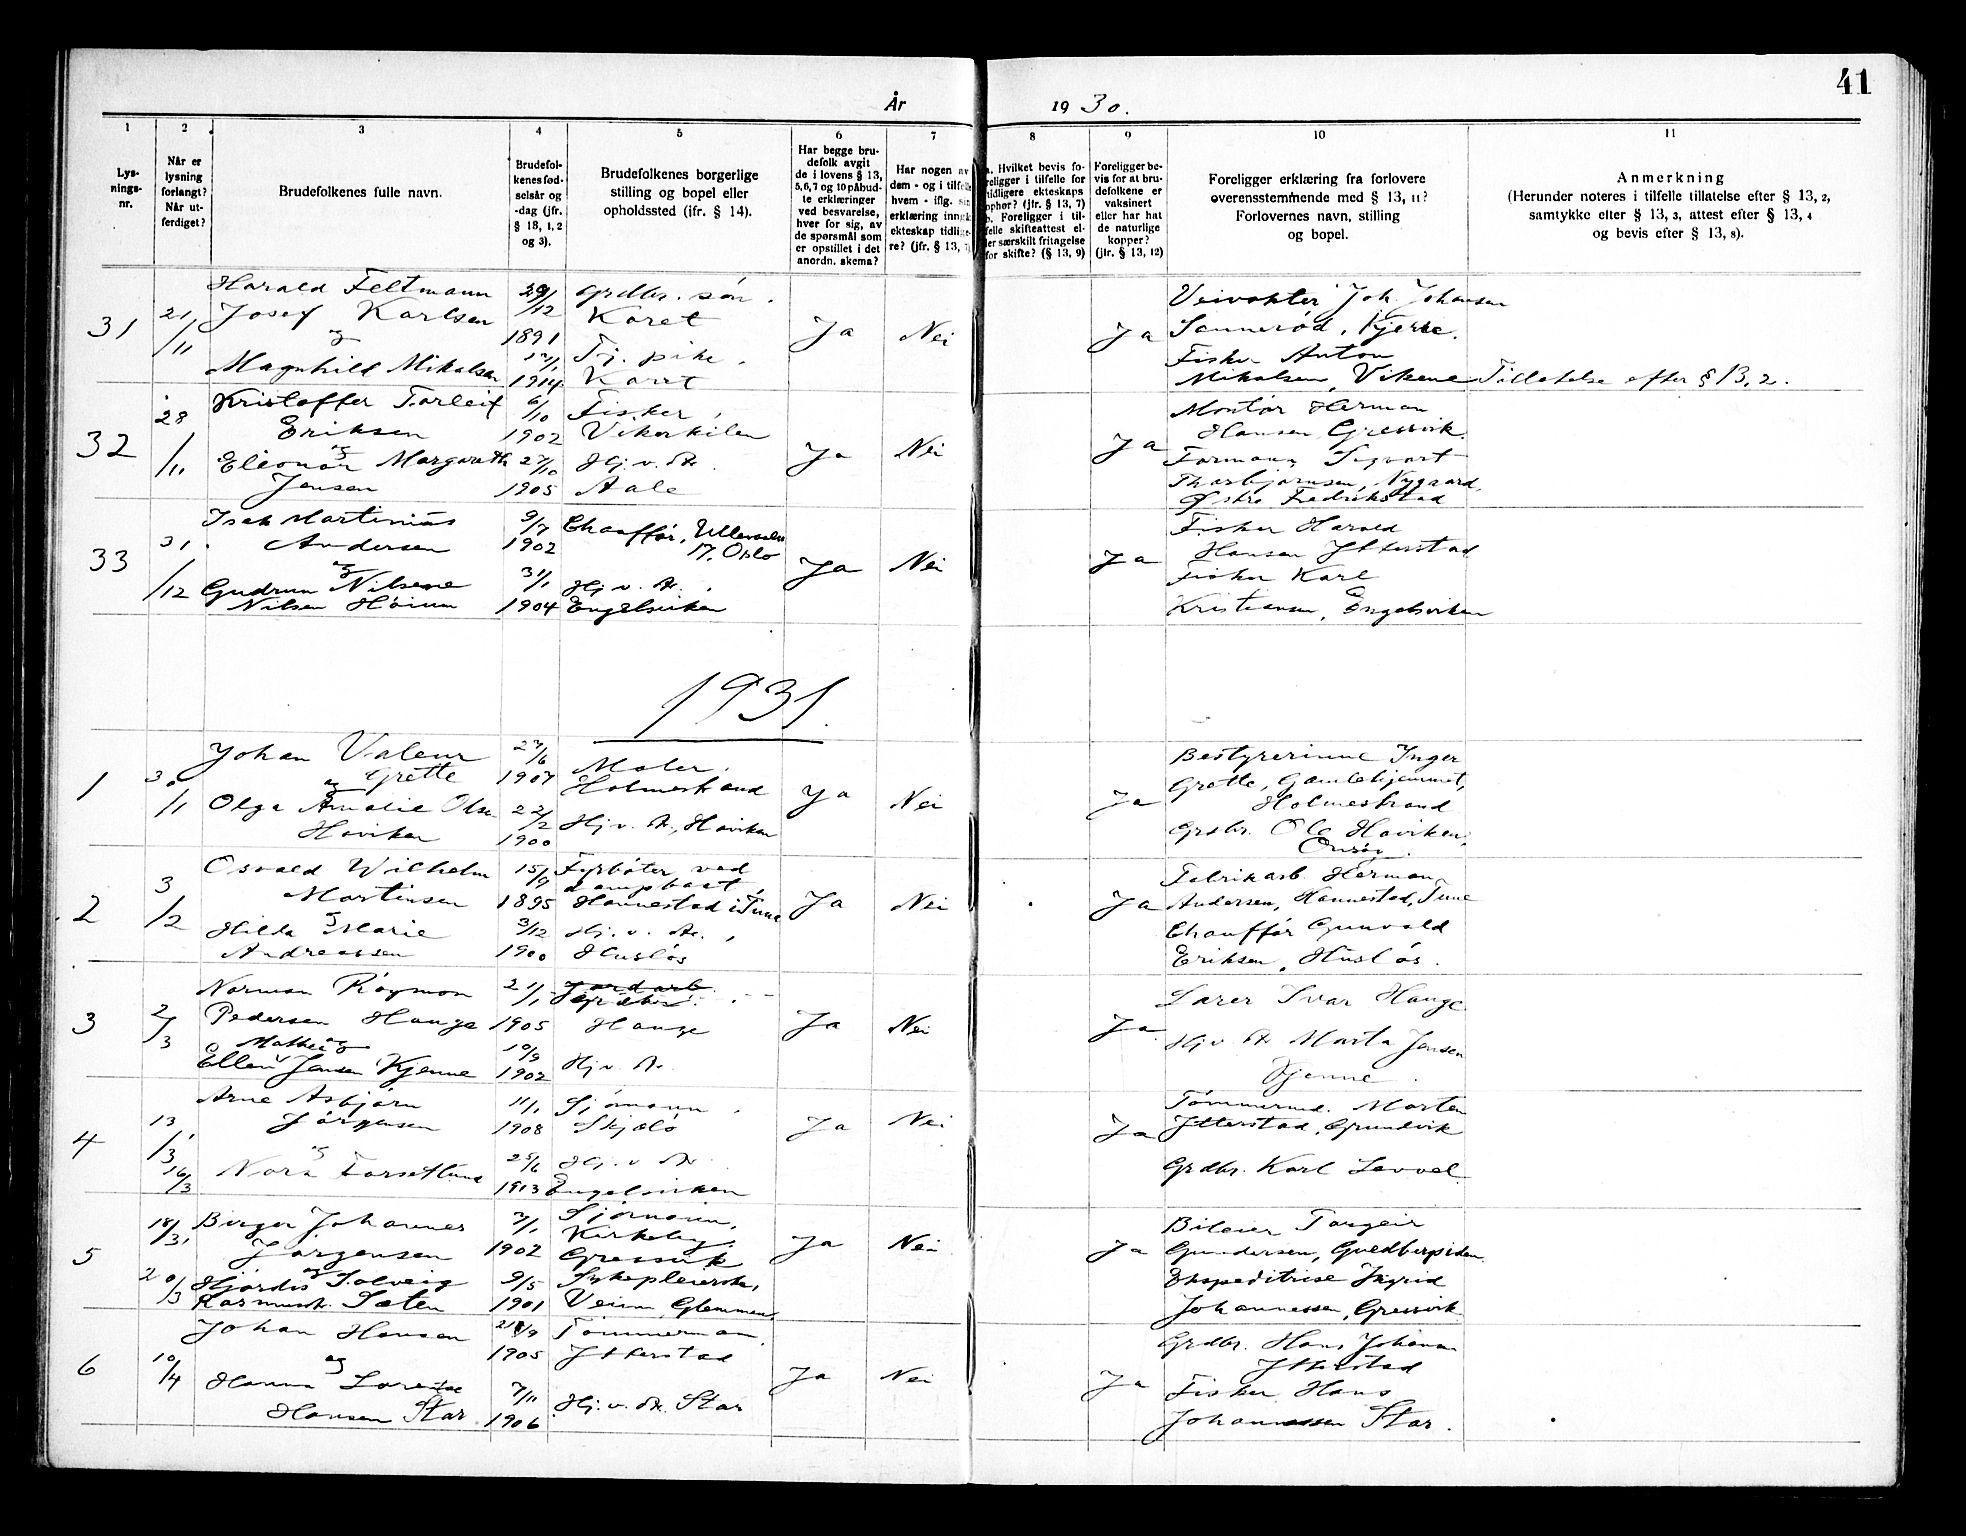 41
År 1930.
1 2 3 4 5 6 7 8 9 10 11
Lys-
nings-
nr.
Når er
lysning
forlangt?
Når ut-
ferdiget?
Brudefolkenes fulle navn.
Brudefol-
kenes fød-
selsår og
-dag (jfr.
§ 18, 1, 2
og 3).
Brudefolkenes borgerlige
stilling og bopel eller
opholdssted (ifr. § 14).
Har begge bru-
defolk avgit
de i lovens § 13,
5, 6, 7 og 10 påbud-
te erklæringer
ved besvarelse,
hver for sig, av
de spørsmål som
er opstillet i det
anordn. skema?
Har nogen av
dem - og i tilfelle
hvem - iflg. sin
erklæring inngå
ekteskap tidlige-
re? (jfr. § 13,
a. Hvilket bevis fo-
religger i tilfelle for
tidligere ekteskaps
ophør? (jfr. § 13, 7)
b. Foreligger i til-
felle skifteattest el-
ler særskilt fritagelse
for skifte? (§ 13, 9)
Foreligger be-
vis for at bru-
defolkene er
vaksinert
eller har hat
de naturlige
kopper?
(jfr. § 13, 12)
Foreligger erklæring fra forlovere
overensstemmende med § 13, 11?
Forlovernes navn, stilling
og bopel.
Anmerkning
(Herunder noteres i tilfelle tillatelse efter § 13, 2,
samtykke efter § 13, 3, attest efter § 13, 4
og bevis efter § 13, 8).
31
21/11
Harald Feltmann
Josef Karlsen
og
Magnhild Mikalsen
29/12
1891
1914
Grdbr. søn.
Karet
Tj. pike.
Karet
Ja
Nei
Ja
Veivokter Joh. Johansen
Sannerød, Kjerre.
Fisker Anton
Mikalsen, Vikene
Tillatelse efter § 13, 2.
32
28/11
Kristoffer Torleif
Eriksen
og
Eleonar Margareth
Jensen
6/10
1902
27/10
1905
Fisker,
Vikerkilen
Hj. v. dr.
Aale
Ja
Nei
Ja
Montør Herman
Hansen Gressvik.
Formann Sigvart
Thorbjørnsen, Nygaard,
Østre Fredrikstad
33
31/12
Isak Martinius
Andersen
og
Gudrun Nilsene
Nilsen Høium
9/7
1902
31/1
1904
Chauffør, Ullevaalsv
17. Oslo
Hj. v. dr.,
Engelsviken
Ja
Nei
Ja
Fisker Harald
Hansen Ytterstad
Fisker Karl
Kristiansen, Engelsviken
1931.
1
30/1
Johan Valeur
Grette
og
Olga Amalie Olsen
Haviken
27/6
1907
22/2
1900
Maler.
Holmestrand
Hj. v. dr., Haviken
Ja
Nei
Ja
Bestyrerinne Inger
Grette, Gamlehjemmet,
Holmestrand
Grdbr. Ole Haviken,
Onsøy.
2
3/2
Osvald Wilhelm
Martinsen
og
Hilda Marie
Andreassen
15/9
1895
3/12
1900
Fyrbøter ved
dampbaat,
Hannestad i Tune
Hj. v. dr.,
Husløs
Ja
Nei
Ja
Fabrikarb. Herman
Andersen, Hannestad, Tune
Chauffør Gunvald
Eriksen, Husløs.
3
2/3
Norman Røymon
Pedersen Hauge
Mathea og
Ellen Jensen Kjenne
21/1
1905
10/9
1902
Jordarb.
Hauge
Hj. v. dr.
Ja
Nei
Ja
Lærer Ivar Hauge
Hj. v. dr. Marta Jensen
Kjenne.
4
13/3
16/3
Arne Asbjørn
Jørgensen
og
Nora Torsetlund
11/1
1908
25/6
1913
Sjømann.
Skjælø
Hj. v. dr.
Engelsviken
Ja
Nei
Ja
Tømmermd. Morten
Ytterstad, Grundvik
Grdbr. Karl Levvel.
5
18/3
20/3
Birger Johannes
Jørgensen
og
Hjørdis Solveig
Rasmuss. Sæten
3/1
1902
9/5
1901
Sjømann,
Kirkeby,
Gressvik
Sykepleierske,
Veum, Glemmen
Ja
Nei
Ja
Bileier Torgeir
Gundersen, Guldbergsiden
Ekspeditrise Ingrid
Johannessen, Gressvik
6
10/4
Johan Hansen
og
Hanna
Hansen Star
1905
7/11
1906
Tømmerman.
Ytterstad
Hj. v. dr. Star
Ja
Nei
Ja
Grdbr. Hans Johansen
Ytterstad
Fisker Hans
Johannessen Star.